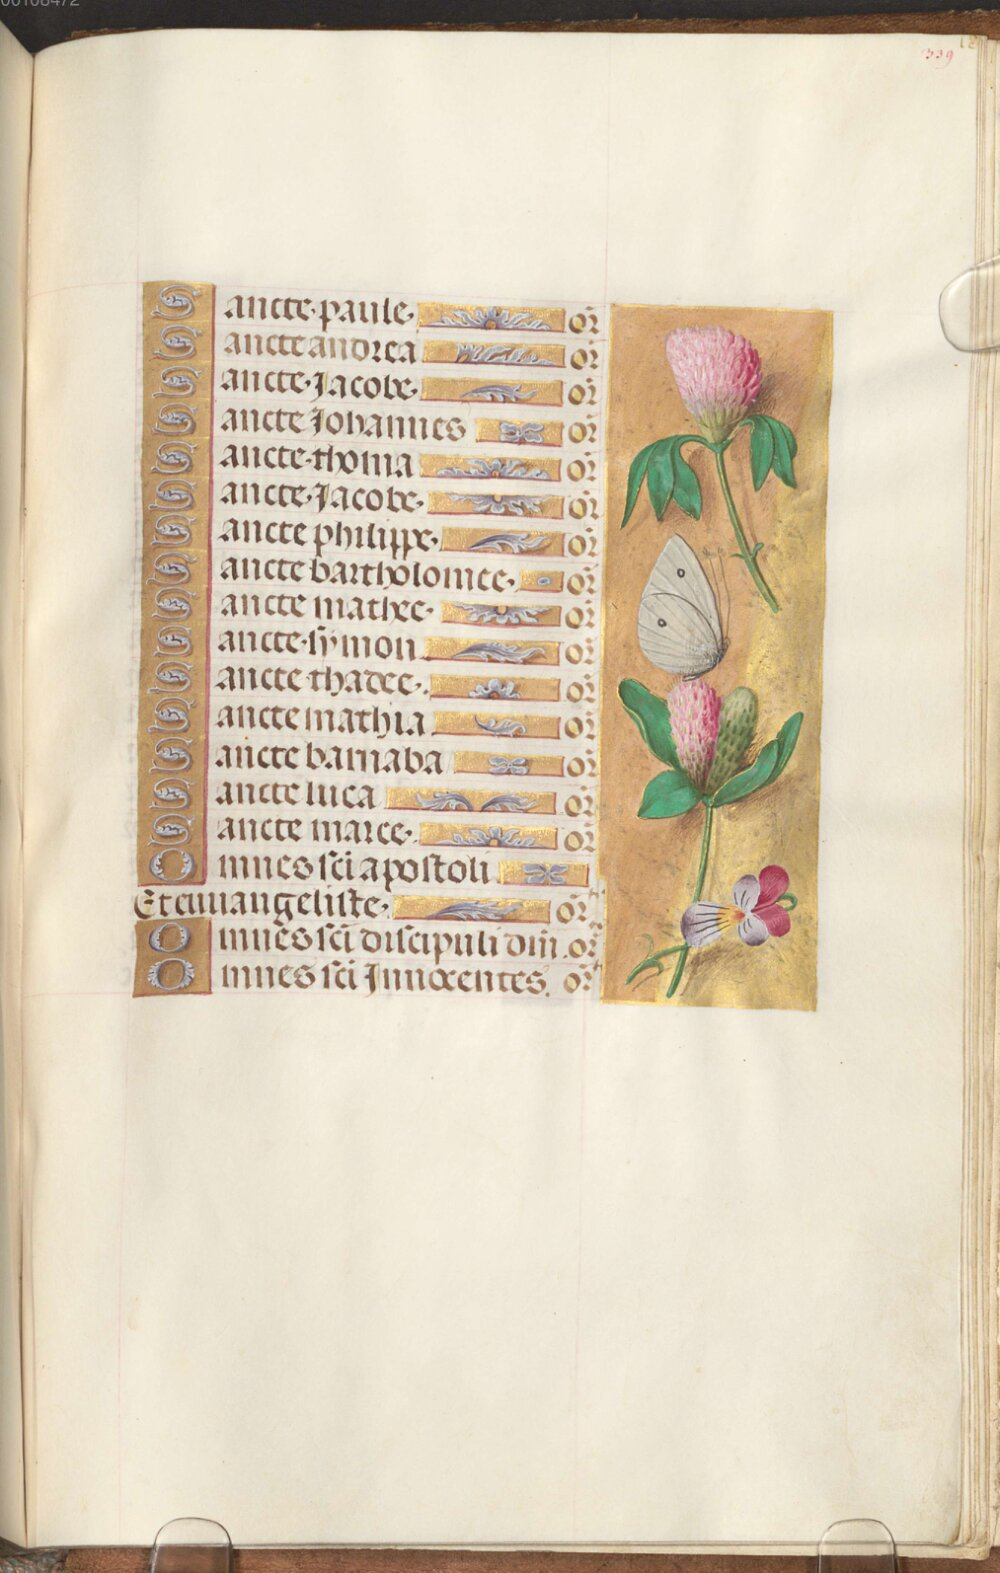 00108472
339
Sancte·paule· or̃
Sancte andrea or̃
Sancte·Jacobe· or̃
Sancte Johannes or̃
Sancte·thoma or̃
Sancte·Jacobe· or̃
Sancte philippe· or̃
Sancte bartholomee· or̃
Sancte mathee· or̃
Sancte·symon or̃
Sancte·thadee· or̃
Sancte mathia or̃
Sancte barnaba or̃
Sancte luca or̃
Sancte marce· or̃
Omnes sc̃i apostoli
Et euuangeliste· or̃
Omnes sc̃i discipuli dñi. or̃
Omnes sc̃i Innocentes. or̃